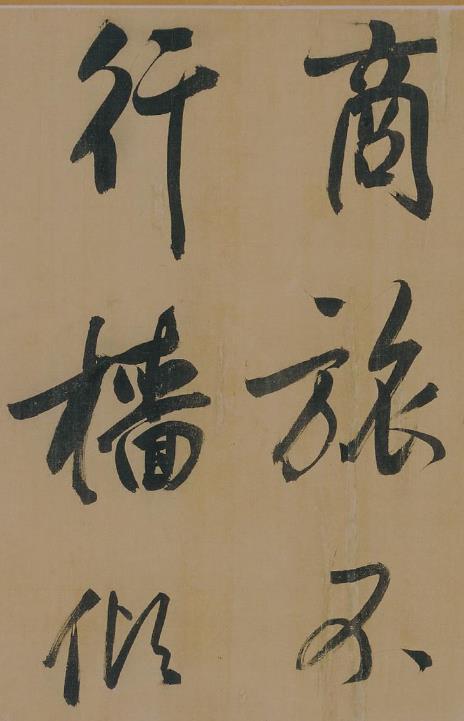 商旅不
行檣傾